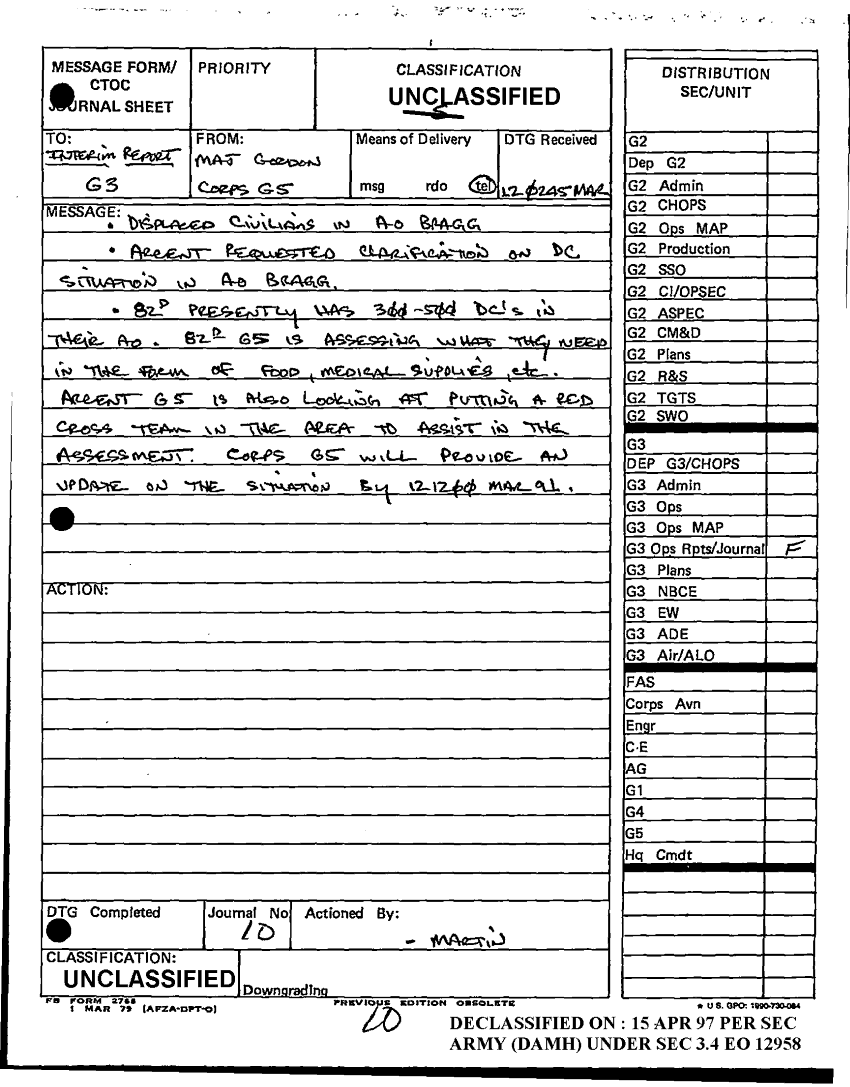 MESSAGE FORM/
CTOC
JOURNAL SHEET
PRIORITY
CLASSIFICATION
UNCLASSIFIED
TO:
INTERIM REPORT
G3
FROM:
MAJ GORDON
CORPS G5
Means of Delivery
msg rdo tel
DTG Received
120245 MAR
MESSAGE:
• DISPLACED CIVILIANS IN AO BRAGG
• ARCENT REQUESTED CLARIFICATION ON DC
SITUATION IN AO BRAGG.
• 82D PRESENTLY HAS 300-500 DC'S IN
THEIR AO. 82D G5 IS ASSESSING WHAT THEY NEED
IN THE FORM OF FOOD, MEDICAL SUPPLIES, etc.
ARCENT G5 IS ALSO LOOKING AT PUTTING A RED
CROSS TEAM IN THE AREA TO ASSIST IN THE
ASSESSMENT. CORPS G5 WILL PROVIDE AN
UPDATE ON THE SITUATION By 121200 MAR 91.
ACTION:
DTG Completed
Journal No
10
Actioned By:
- MARTIN
CLASSIFICATION:
UNCLASSIFIED
Downgrading
FB FORM 2768
1 MAR 79 (AFZA-DPT-O)
PREVIOUS EDITION OBSOLETE
10
DISTRIBUTION
SEC/UNIT
G2
Dep G2
G2 Admin
G2 CHOPS
G2 Ops MAP
G2 Production
G2 SSO
G2 CI/OPSEC
G2 ASPEC
G2 CM&D
G2 Plans
G2 R&S
G2 TGTS
G2 SWO
G3
DEP G3/CHOPS
G3 Admin
G3 Ops
G3 Ops MAP
G3 Ops Rpts/Journal F
G3 Plans
G3 NBCE
G3 EW
G3 ADE
G3 Air/ALO
FAS
Corps Avn
Engr
C-E
AG
G1
G4
G5
Hq Cmdt
★ U.S. GPO: 1990-730-084
DECLASSIFIED ON : 15 APR 97 PER SEC
ARMY (DAMH) UNDER SEC 3.4 EO 12958